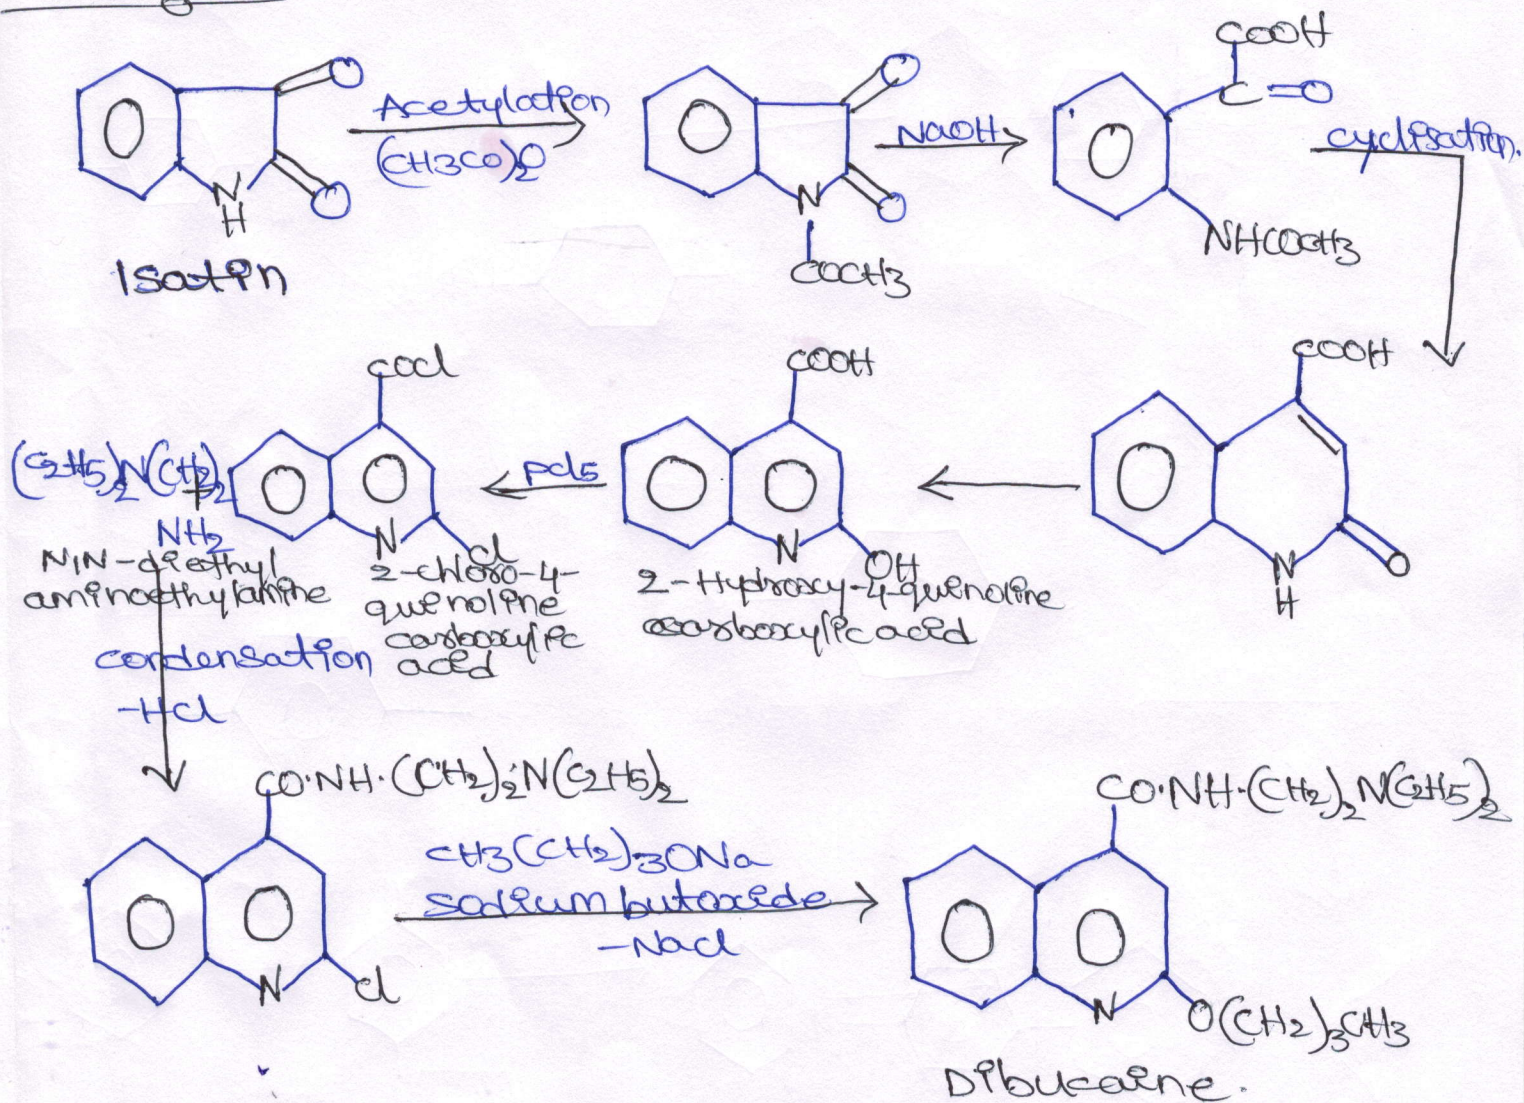 O
O
N
H
Isatin
Acetylation
(CH3CO)2O
O
O
N
COCH3
NaOH
COOH
C=O
NHCOCH3
cyclisation.
COOH
O
N
H
COOH
N
OH
2-Hydroxy-4-quinoline
carboxylic acid
PCl5
COCl
N
Cl
2-chloro-4-
quinoline
carboxylic
acid
+
(C2H5)2N(CH2)2
NH2
N,N-diethyl
aminoethylamine
condensation
-HCl
CO·NH·(CH2)2·N(C2H5)2
N
Cl
CH3(CH2)3ONa
sodium butoxide
-NaCl
CO·NH·(CH2)2N(C2H5)2
N
O(CH2)3CH3
Dibucaine.